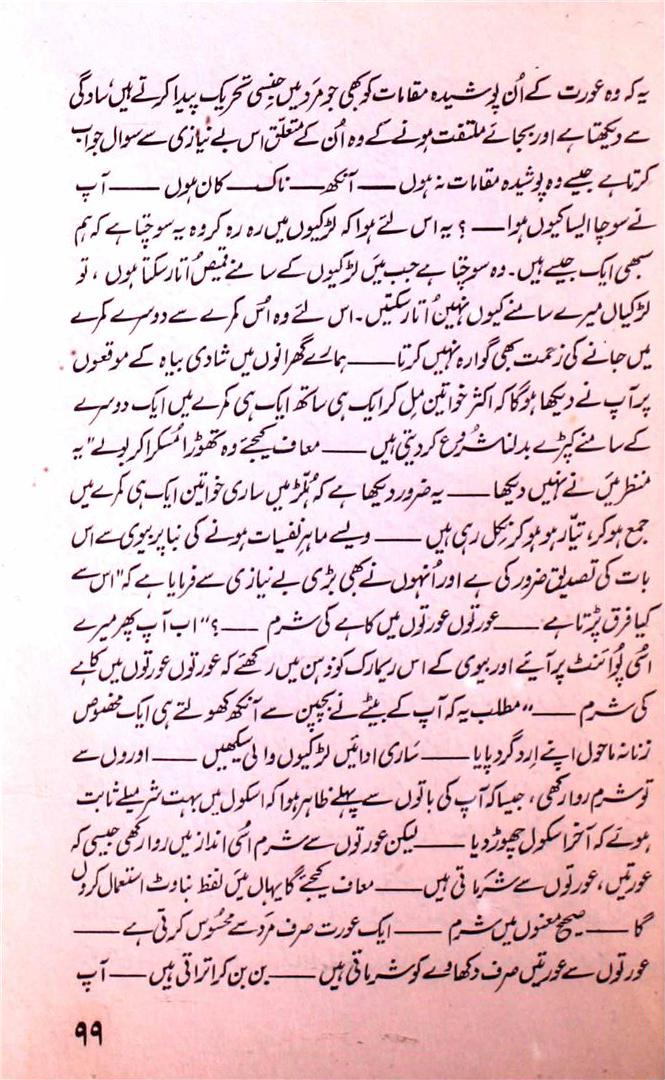 یہ کہ وہ عورت کے اُن پوشیدہ مقامات کو بھی جو مرد میں جنسی تحریک پیدا کرتے ہیں سادگی
سے دیکھتا ہے اور بجائے ملتفت ہونے کے وہ اُن کے متعلق اس بے نیازی سے سوال جواب
کرتا ہے جیسے وہ پوشیدہ مقامات نہ ہوں —— آنکھ —— ناک —— کان ہوں —— آپ
نے سوچا ایسا کیوں ہوا —— ؟ یہ اس لئے ہوا کہ لڑکیوں میں رہ رہ کر وہ یہ سوچتا ہے کہ ہم
سبھی ایک جیسے ہیں۔ وہ سوچتا ہے جب میں لڑکیوں کے سامنے قمیص اُتار سکتا ہوں، تو
لڑکیاں میرے سامنے کیوں نہیں اُتار سکتیں۔ اس لئے وہ اُس کمرے سے دوسرے کمرے
میں جانے کی زحمت بھی گوارہ نہیں کرتا —— ہمارے گھرانوں میں شادی بیاہ کے موقعوں
پر آپ نے دیکھا ہو گا کہ اکثر خواتین مل کر ایک ہی ساتھ ایک ہی کمرے میں ایک دوسرے
کے سامنے کپڑے بدلنا شروع کر دیتی ہیں —— معاف کیجئے وہ تھوڑا مُسکرا کر بولے "یہ
منظر میں نے نہیں دیکھا —— یہ ضرور دیکھا ہے کہ ہُلّڑ میں ساری خواتین ایک ہی کمرے میں
جمع ہو کر، تیّار ہو ہو کر نکل رہی ہیں —— ویسے ماہرِ نفسیات ہونے کی بنا پر بیوی سے اس
بات کی تصدیق ضرور کی ہے اور اُنہوں نے بھی بڑی بے نیازی سے فرمایا ہے کہ "اس سے
کیا فرق پڑتا ہے —— عورتوں عورتوں میں کاہے کی شرم —— ؟" اب آپ پھر میرے
اسی پوائنٹ پر آیئے اور بیوی کے اس ریمارک کو ذہن میں رکھئے کہ عورتوں عورتوں میں کاہے
کی شرم ——" مطلب یہ کہ آپ کے بیٹے نے بچپن سے آنکھ کھولتے ہی ایک مخصوص
زنانہ ماحول اپنے اِرد گرد پایا —— ساری ادائیں لڑکیوں والی سیکھیں —— اوروں سے
تو شرم روا رکھی، جیسا کہ آپ کی باتوں سے پہلے ظاہر ہوا کہ اسکول میں بہت شرمیلے ثابت
ہوئے کہ آخر اسکول چھوڑ دیا —— لیکن عورتوں سے شرم اُسی انداز میں روا رکھی جیسی کہ
عورتیں، عورتوں سے شرماتی ہیں —— معاف کیجئے گا یہاں میں لفظ بناوٹ استعمال کروں
گا —— صحیح معنوں میں شرم —— ایک عورت صرف مَرد سے محسُوس کرتی ہے ——
عورتوں سے عورتیں صرف دکھاوے کو شرماتی ہیں —— بن بن کر اتراتی ہیں —— آپ
۹۹